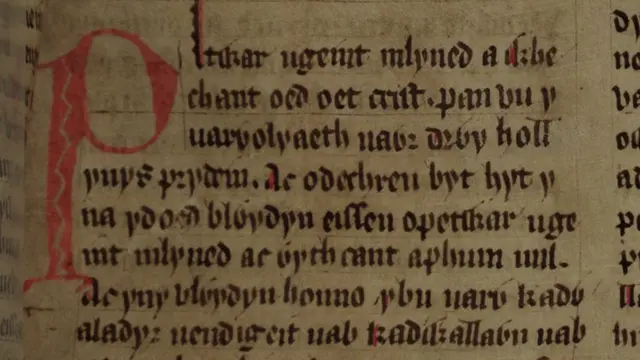 Petwar ugeint mlyned a chwe
chant oed oet crist. pan vu y
uarỽolyaeth uaỽr drỽy holl
ynys prydein. Ac odechreu byt hyt y
na ydoed blỽydyn eisseu opetwar uge
int mlyned ac ỽyth cant aphum mil.
Ac yny vlỽydyn honno ybu uarỽ kadỽ
aladyr uendigeit uab kadwallaỽn uab